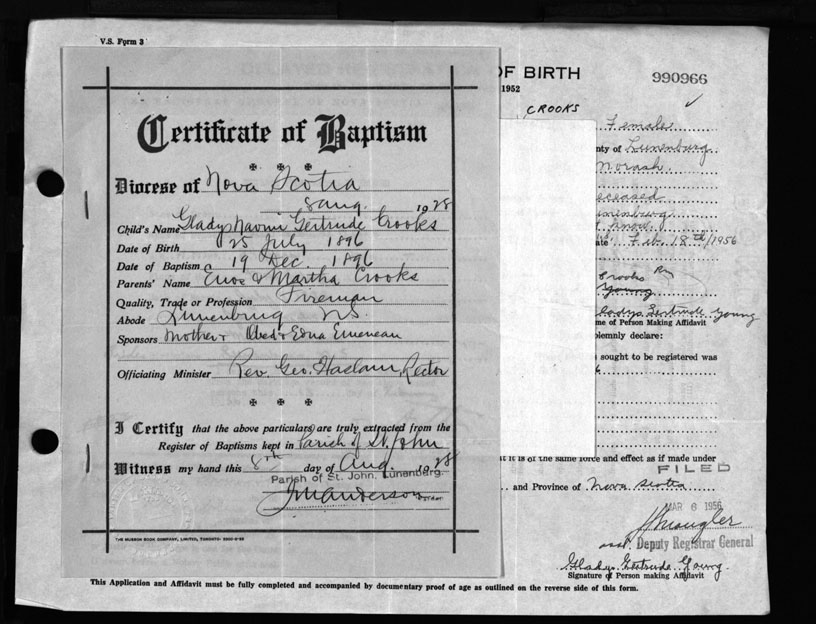 V.S. Form 3
OF BIRTH
990966
1952
CROOKS
Certificate of Baptism
Diocese of Nova Scotia
8 Aug. 1928
Child's Name Gladys Naomi Gertrude Crooks
Date of Birth 25 July 1896
Date of Baptism 19 Dec. 1896
Parents' Name Enos & Martha Crooks
Quality, Trade or Profession Fireman
Abode Lunenburg N.S.
Sponsors Mother + Obed + Edna Emeneau
Officiating Minister Rev. Geo. Haslam, Rector
I Certify that the above particulars are truly extracted from the
Register of Baptisms kept in Parish of St. John
Witness my hand this 8th day of Aug. 1928
Parish of St. John, Lunenburg.
THE MUSSON BOOK COMPANY, LIMITED, TORONTO
Female
nty of Lunenburg
Morash
eceased
unenburg
ate Feb. 18th/1956
Crooks
Young
Gladys Gertrude Young
me of Person Making Affidavit
olemnly declare:
sought to be registered was
6
t it is of the same force and effect as if made under
FILED
and Province of Nova Scotia
MAR 6 1956
asst. Deputy Registrar General
Gladys Gertrude Young
Signature of Person making Affidavit
This Application and Affidavit must be fully completed and accompanied by documentary proof of age as outlined on the reverse side of this form.